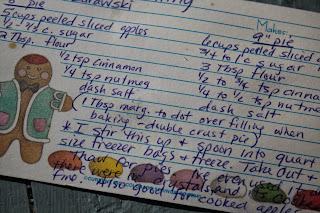 8" pie
Makes:
9" pie
5 cups peeled sliced apples
6 cups peeled sliced
1/2 - 3/4 c. sugar
3/4 to 1 c sugar
2 Tbsp. flour
3 Tbsp flour
1/2 tsp cinnamon
1/2 to 3/4 tsp cinnam
1/4 tsp nutmeg
1/4 to 1/2 tsp nutme
dash salt
dash salt
(1 Tbsp marg. to dot over filling when
baking - double crust pie)
* I stir this up & spoon into quart
size freezer bags & freeze. Take out +
thaw for pies. I've even used it when
there were ice crystals and
fine. Also good for cooked apples